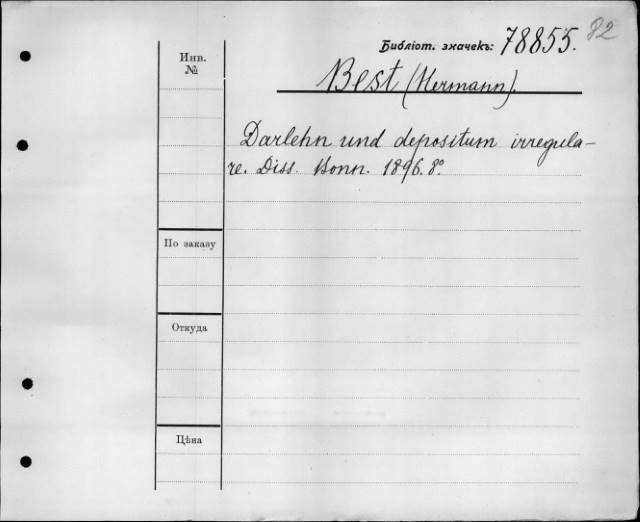 82
Библіот. значекъ: 78855.
Инв. №
Best (Hermann).
Darlehn und depositum irregula-
re. Diss. Bonn. 1896. 8º.
По заказу
Откуда
Цѣна